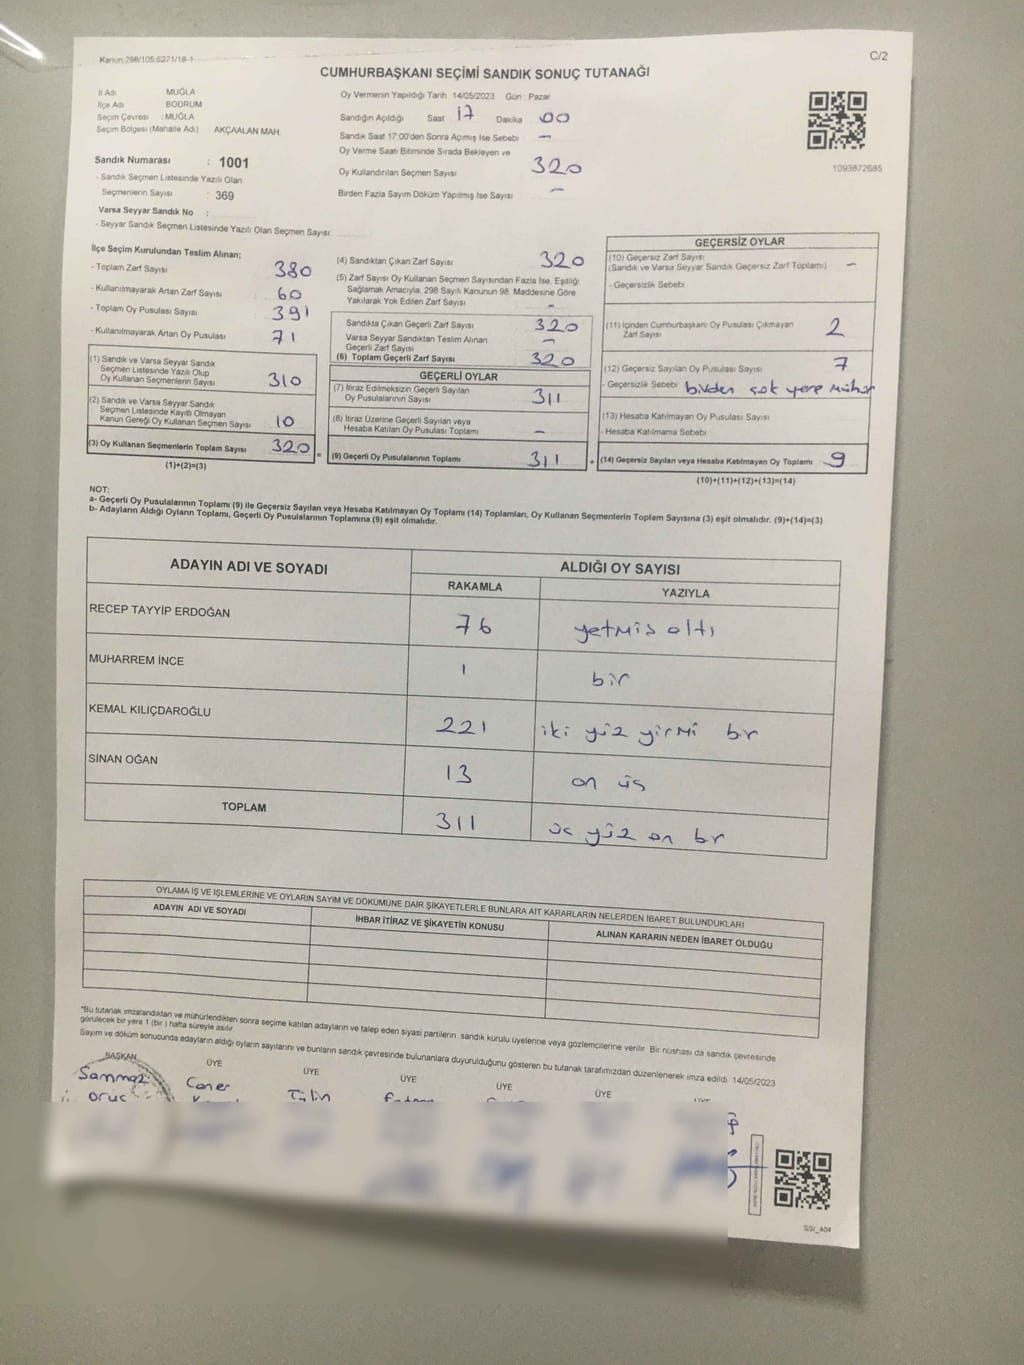 Kanun:298/105;6271/18-1
C/2
CUMHURBAŞKANI SEÇİMİ SANDIK SONUÇ TUTANAĞI
İl Adı MUĞLA
İlçe Adı BODRUM
Seçim Çevresi : MUĞLA
Seçim Bölgesi (Mahalle Adı) AKÇAALAN MAH.
Sandık Numarası : 1001
- Sandık Seçmen Listesinde Yazılı Olan
Seçmenlerin Sayısı : 369
Varsa Seyyar Sandık No :
- Seyyar Sandık Seçmen Listesinde Yazılı Olan Seçmen Sayısı:
Oy Vermenin Yapıldığı Tarih 14/05/2023 Gün : Pazar
Sandığın Açıldığı Saat 17 Dakika 00
Sandık Saat 17:00'den Sonra Açılmış İse Sebebi –
Oy Verme Saati Bitiminde Sırada Bekleyen ve
Oy Kullandırılan Seçmen Sayısı 320
Birden Fazla Sayım Döküm Yapılmış İse Sayısı –
1093872685
İlçe Seçim Kurulundan Teslim Alınan;
- Toplam Zarf Sayısı 380
- Kullanılmayarak Artan Zarf Sayısı 60
- Toplam Oy Pusulası Sayısı 391
- Kullanılmayarak Artan Oy Pusulası 71
(1) Sandık ve Varsa Seyyar Sandık
Seçmen Listesinde Yazılı Olup
Oy Kullanan Seçmenlerin Sayısı 310
(2) Sandık ve Varsa Seyyar Sandık
Seçmen Listesinde Kayıtlı Olmayan
Kanun Gereği Oy Kullanan Seçmen Sayısı 10
(3) Oy Kullanan Seçmenlerin Toplam Sayısı 320 =
(1)+(2)=(3)
(4) Sandıktan Çıkan Zarf Sayısı 320
(5) Zarf Sayısı Oy Kullanan Seçmen Sayısından Fazla İse, Eşitliği
Sağlamak Amacıyla, 298 Sayılı Kanunun 98. Maddesine Göre
Yakılarak Yok Edilen Zarf Sayısı –
Sandıkta Çıkan Geçerli Zarf Sayısı 320
Varsa Seyyar Sandıktan Teslim Alınan
Geçerli Zarf Sayısı –
(6) Toplam Geçerli Zarf Sayısı 320
GEÇERLİ OYLAR
(7) İtiraz Edilmeksizin Geçerli Sayılan
Oy Pusulalarının Sayısı 311
(8) İtiraz Üzerine Geçerli Sayılan veya
Hesaba Katılan Oy Pusulası Toplamı –
(9) Geçerli Oy Pusulalarının Toplamı 311 +
GEÇERSİZ OYLAR
(10) Geçersiz Zarf Sayısı
(Sandık ve Varsa Seyyar Sandık Geçersiz Zarf Toplamı) –
- Geçersizlik Sebebi
(11) İçinden Cumhurbaşkanı Oy Pusulası Çıkmayan
Zarf Sayısı 2
(12) Geçersiz Sayılan Oy Pusulası Sayısı 7
- Geçersizlik Sebebi birden çok yere mühür
(13) Hesaba Katılmayan Oy Pusulası Sayısı
- Hesaba Katılmama Sebebi
(14) Geçersiz Sayılan veya Hesaba Katılmayan Oy Toplamı 9
(10)+(11)+(12)+(13)=(14)
NOT:
a- Geçerli Oy Pusulalarının Toplamı (9) ile Geçersiz Sayılan veya Hesaba Katılmayan Oy Toplamı (14) Toplamları, Oy Kullanan Seçmenlerin Toplam Sayısına (3) eşit olmalıdır. (9)+(14)=(3)
b- Adayların Aldığı Oyların Toplamı, Geçerli Oy Pusulalarının Toplamına (9) eşit olmalıdır.
ADAYIN ADI VE SOYADI ALDIĞI OY SAYISI
RAKAMLA YAZIYLA
RECEP TAYYİP ERDOĞAN 76 yetmis altı
MUHARREM İNCE 1 bir
KEMAL KILIÇDAROĞLU 221 iki yüz yirmi br
SİNAN OĞAN 13 on üç
TOPLAM 311 üç yüz on br
OYLAMA İŞ VE İŞLEMLERİNE VE OYLARIN SAYIM VE DÖKÜMÜNE DAİR ŞİKAYETLERLE BUNLARA AİT KARARLARIN NELERDEN İBARET BULUNDUKLARI
ADAYIN ADI VE SOYADI İHBAR İTİRAZ VE ŞİKAYETİN KONUSU ALINAN KARARIN NEDEN İBARET OLDUĞU
*Bu tutanak imzalandıktan ve mühürlendikten sonra seçime katılan adayların ve talep eden siyasi partilerin sandık kurulu üyelerine veya gözlemcilerine verilir. Bir nüshası da sandık çevresinde
görülecek bir yere 1 (bir) hafta süreyle asılır.
Sayım ve döküm sonucunda adayların aldığı oyların sayılarını ve bunların sandık çevresinde bulunanlara duyurulduğunu gösteren bu tutanak tarafımızdan düzenlenerek imza edildi. 14/05/2023
BAŞKAN ÜYE ÜYE ÜYE ÜYE ÜYE ÜYE
Caner Tülin
oruç
SSI_404